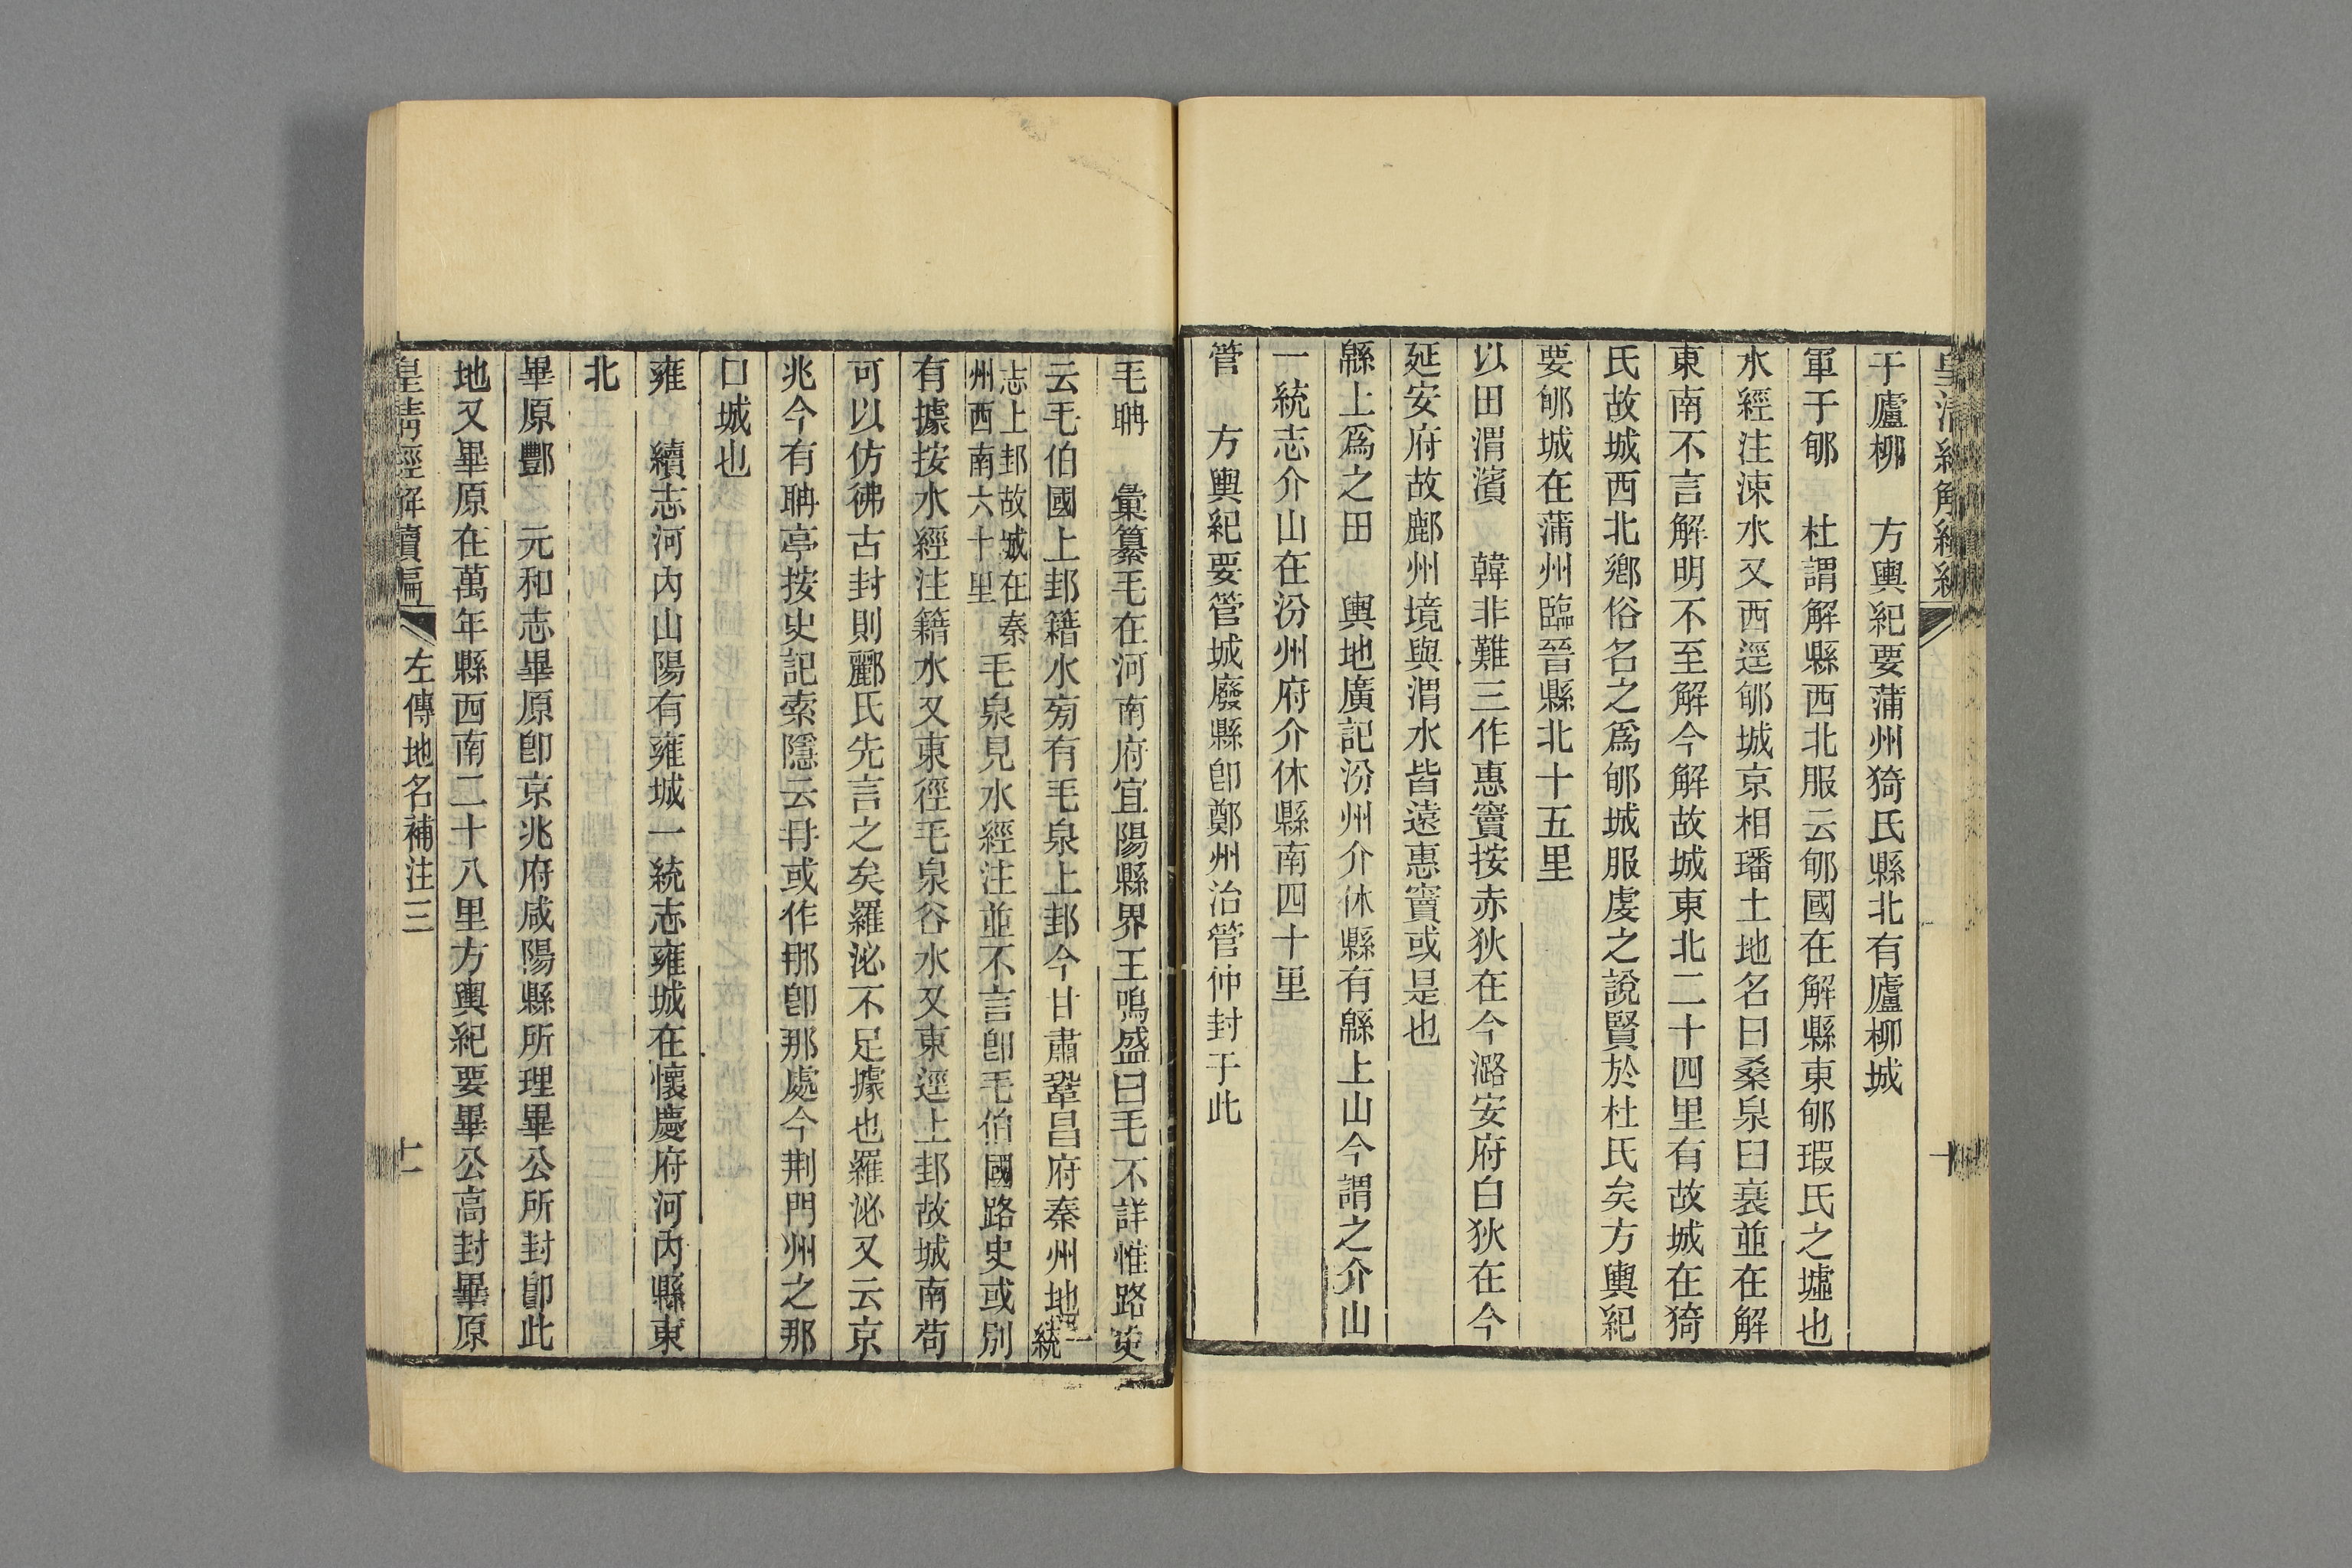 于廬柳　方輿紀要蒲州猗氏縣北有廬柳城
軍于郇　杜謂解縣西北服云郇國在解縣東郇瑕氏之墟也
水經注涑水又西逕郇城京相璠土地名曰桑泉臼衰並在解
東南不言解明不至解今解故城東北二十四里有故城在猗
氏故城西北鄉俗名之爲郇城服虔之說賢於杜氏矣方輿紀
要郇城在蒲州臨晉縣北十五里
以田渭濱　韓非難三作惠竇按赤狄在今潞安府白狄在今
延安府故鄜州境與渭水皆遠惠竇或是也
緜上爲之田　輿地廣記汾州介休縣有緜上山今謂之介山
一統志介山在汾州府介休縣南四十里
管　方輿紀要管城廢縣卽鄭州治管仲封于此
毛聃　彙纂毛在河南府宜陽縣界王鳴盛曰毛不詳惟路史
云毛伯國上邽籍水旁有毛泉上邽今甘肅鞏昌府秦州地一統
志上邽故城在秦州西南六十里　毛泉見水經注並不言卽毛伯國路史或別
有據按水經注籍水又東徑毛泉谷水又東逕上邽故城南苟
可以仿彿古封則酈氏先言之矣羅泌不足據也羅泌又云京
兆今有聃亭按史記索隱云冄或作那卽那處今荆門州之那
口城也
雍　續志河內山陽有雍城一統志雍城在懷慶府河內縣東
北
畢原酆　元和志畢原卽京兆府咸陽縣所理畢公所封卽此
地又畢原在萬年縣西南二十八里方輿紀要畢公高封畢原
皇清經解續編　左傳地名補注三　十一